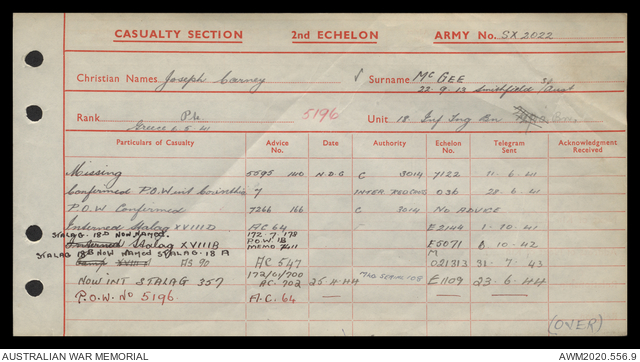 CASUALTY SECTION 2nd ECHELON ARMY No. SX 2022
Christian Names Joseph Carney Surname McGEE
22-9-13 Smithfield Sth Aust
Rank Pte 5196 Unit 18 Inf Tng Bn
Greece 2.5.41
Particulars of Casualty Advice No. Date Authority Echelon No. Telegram Sent Acknowledgment Received
Missing 5595 140 N.D.G C 3014 7122 11-6-41
Confirmed P.O.W int Corinthia 7 INTER REDCROSS 036 28-6-41
P.O.W Confirmed 7266 166 C 3014 NO ADVICE
Interned Stalag XVIII D A.C 64 E2144 1-10-41
STALAG 18.D NOW NAMED 172 7 178
Interned Stalag XVIII B P.O.W. 1B E5071 8.10.42
STALAG 18B NOW NAMED STALAG 18 A MEMO 7411 M
Camp XVIII AS 90 AC 547 021313 31.7.43
172/01/700
NOW INT STALAG 357 AC. 702 25-4-44 E1109 23-6-44
P.O.W. NO 5196 A.C. 64
(OVER)
AUSTRALIAN WAR MEMORIAL AWM2020.556.9